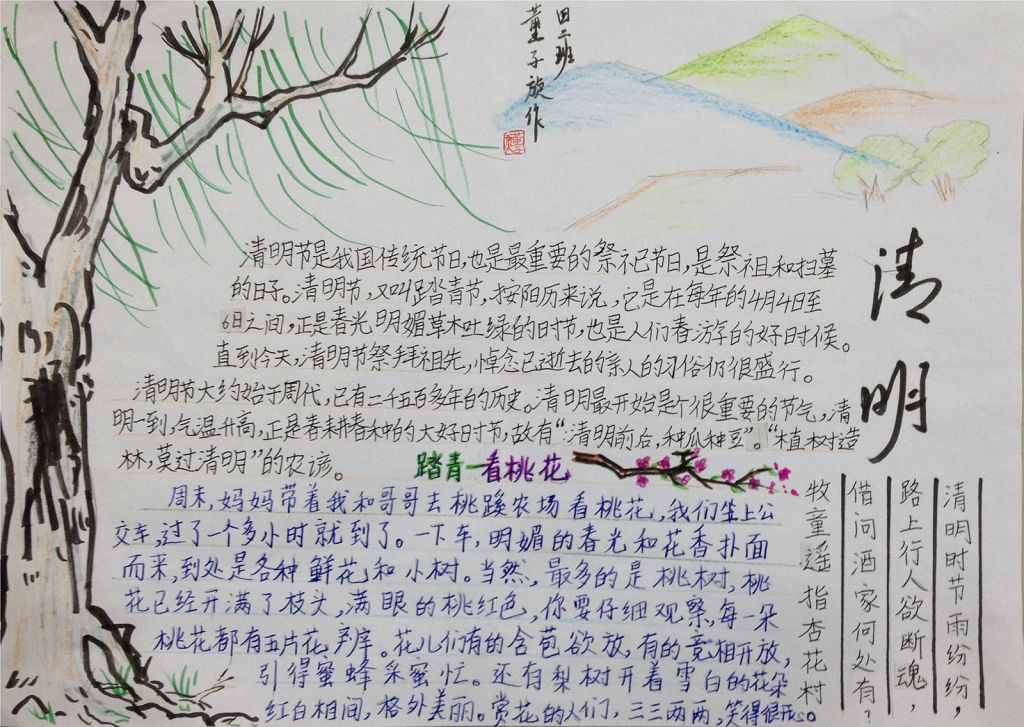 四二班
董子旋作
清明
清明节是我国传统节日,也是最重要的祭祀节日,是祭祖和扫墓
的日子。清明节,又叫踏青节,按阳历来说,它是在每年的4月4日至
6日之间,正是春光明媚草木吐绿的时节,也是人们春游的好时候。
直到今天,清明节祭拜祖先,悼念已逝去的亲人的习俗仍很盛行。
清明节大约始于周代,已有二千五百多年的历史。清明最开始是个很重要的节气,清
明一到,气温升高,正是春耕春种的大好时节,故有“清明前后,种瓜种豆”。“植树造
林,莫过清明”的农谚。
踏青—看桃花
周末,妈妈带着我和哥哥去桃蹊农场看桃花,我们坐上公
交车,过了一个多小时就到了。一下车,明媚的春光和花香扑面
而来,到处是各种鲜花和小树。当然,最多的是桃树,桃
花已经开满了枝头,满眼的桃红色,你要仔细观察,每一朵
桃花都有五片花
花儿们有的含苞欲放,有的竞相开放,
引得蜜蜂采蜜忙。还有梨树开着雪白的花朵
红白相间,格外美丽。赏花的人们,三三两两,笑得很开心。
清明时节雨纷纷,
路上行人欲断魂,
借问酒家何处有?
牧童遥指杏花村